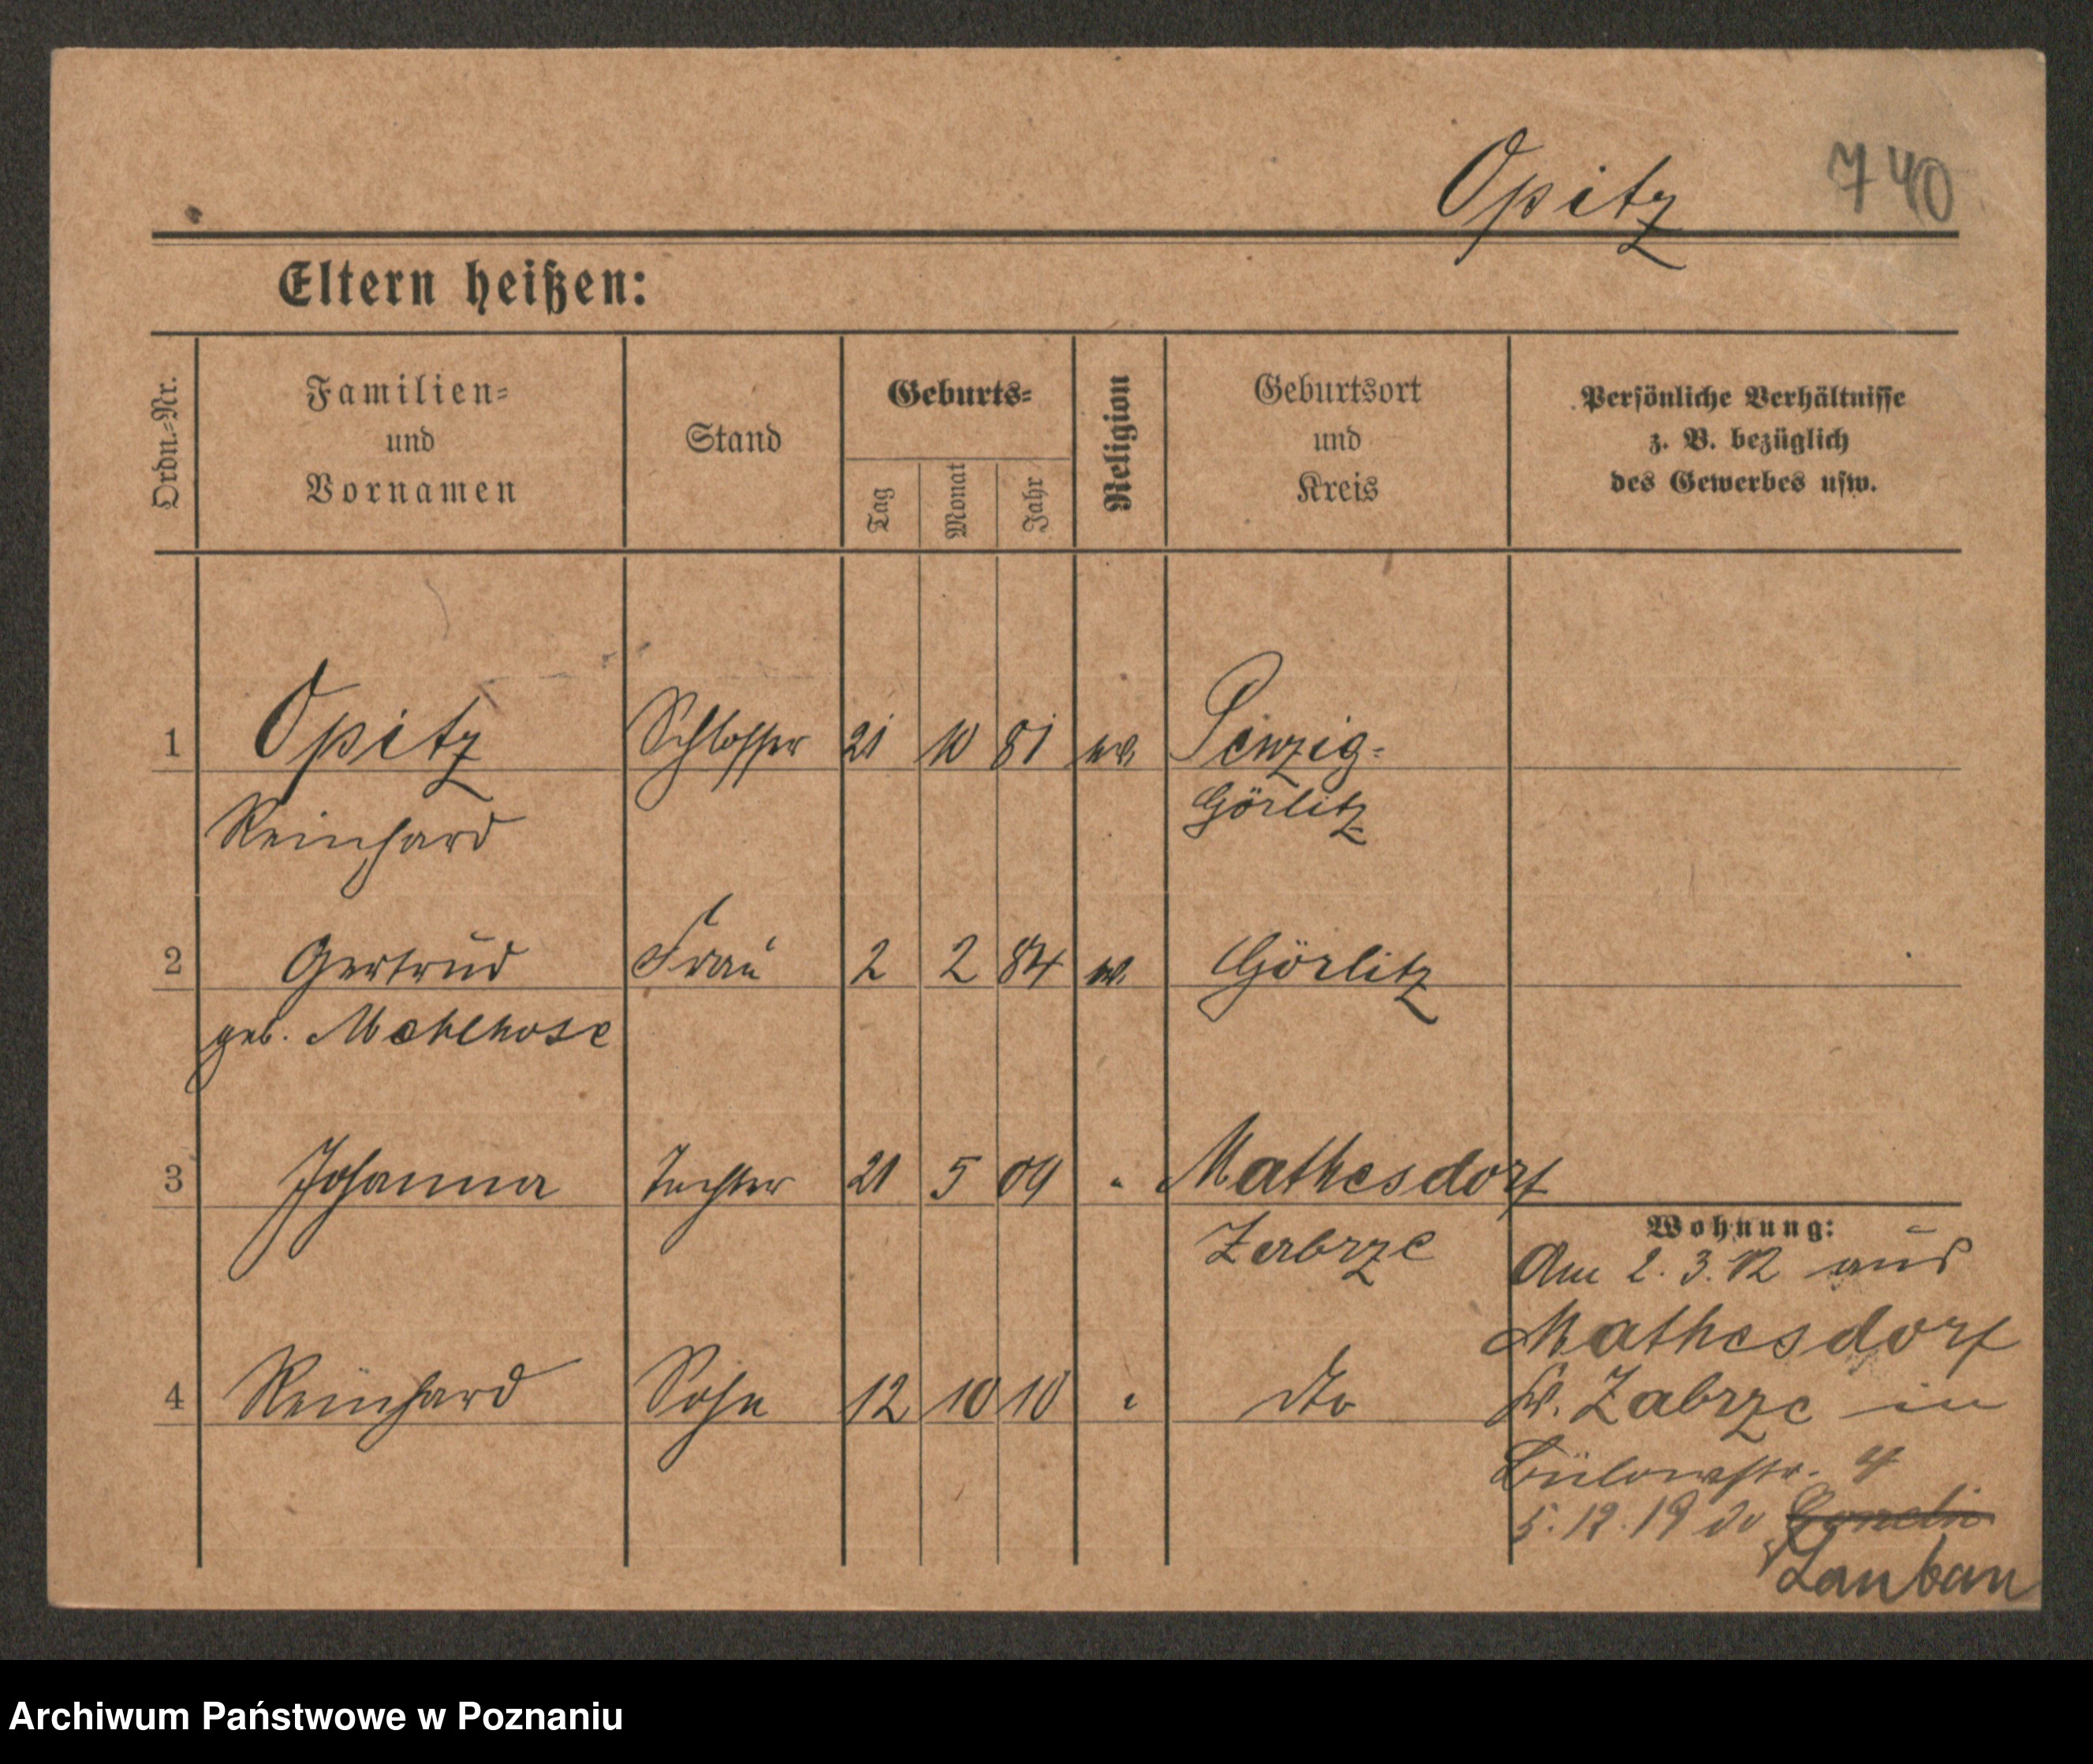 Opitz 740
Eltern heißen:
Ordn.-Nr. Familien- und Vornamen Stand Geburts- Tag Monat Jahr Religion Geburtsort und Kreis Persönliche Verhältnisse z. B. bezüglich des Gewerbes usw.
1 Opitz Schlosser 21 10 81 ev. Penzig-
Reinhard Görlitz
2 Gertrud Frau 2 2 84 ev. Görlitz
geb. Mehlhose
3 Johanna Tochter 21 5 09 " Mathesdorf
Zabrze
Wohnung:
Am 2. 3. 12 aus
Mathesdorf
4 Reinhard Sohn 12 10 10 " dto
Kr. Zabrze in
Bülowstr. 4
5. 12. 19
Lauban
Archiwum Państwowe w Poznaniu